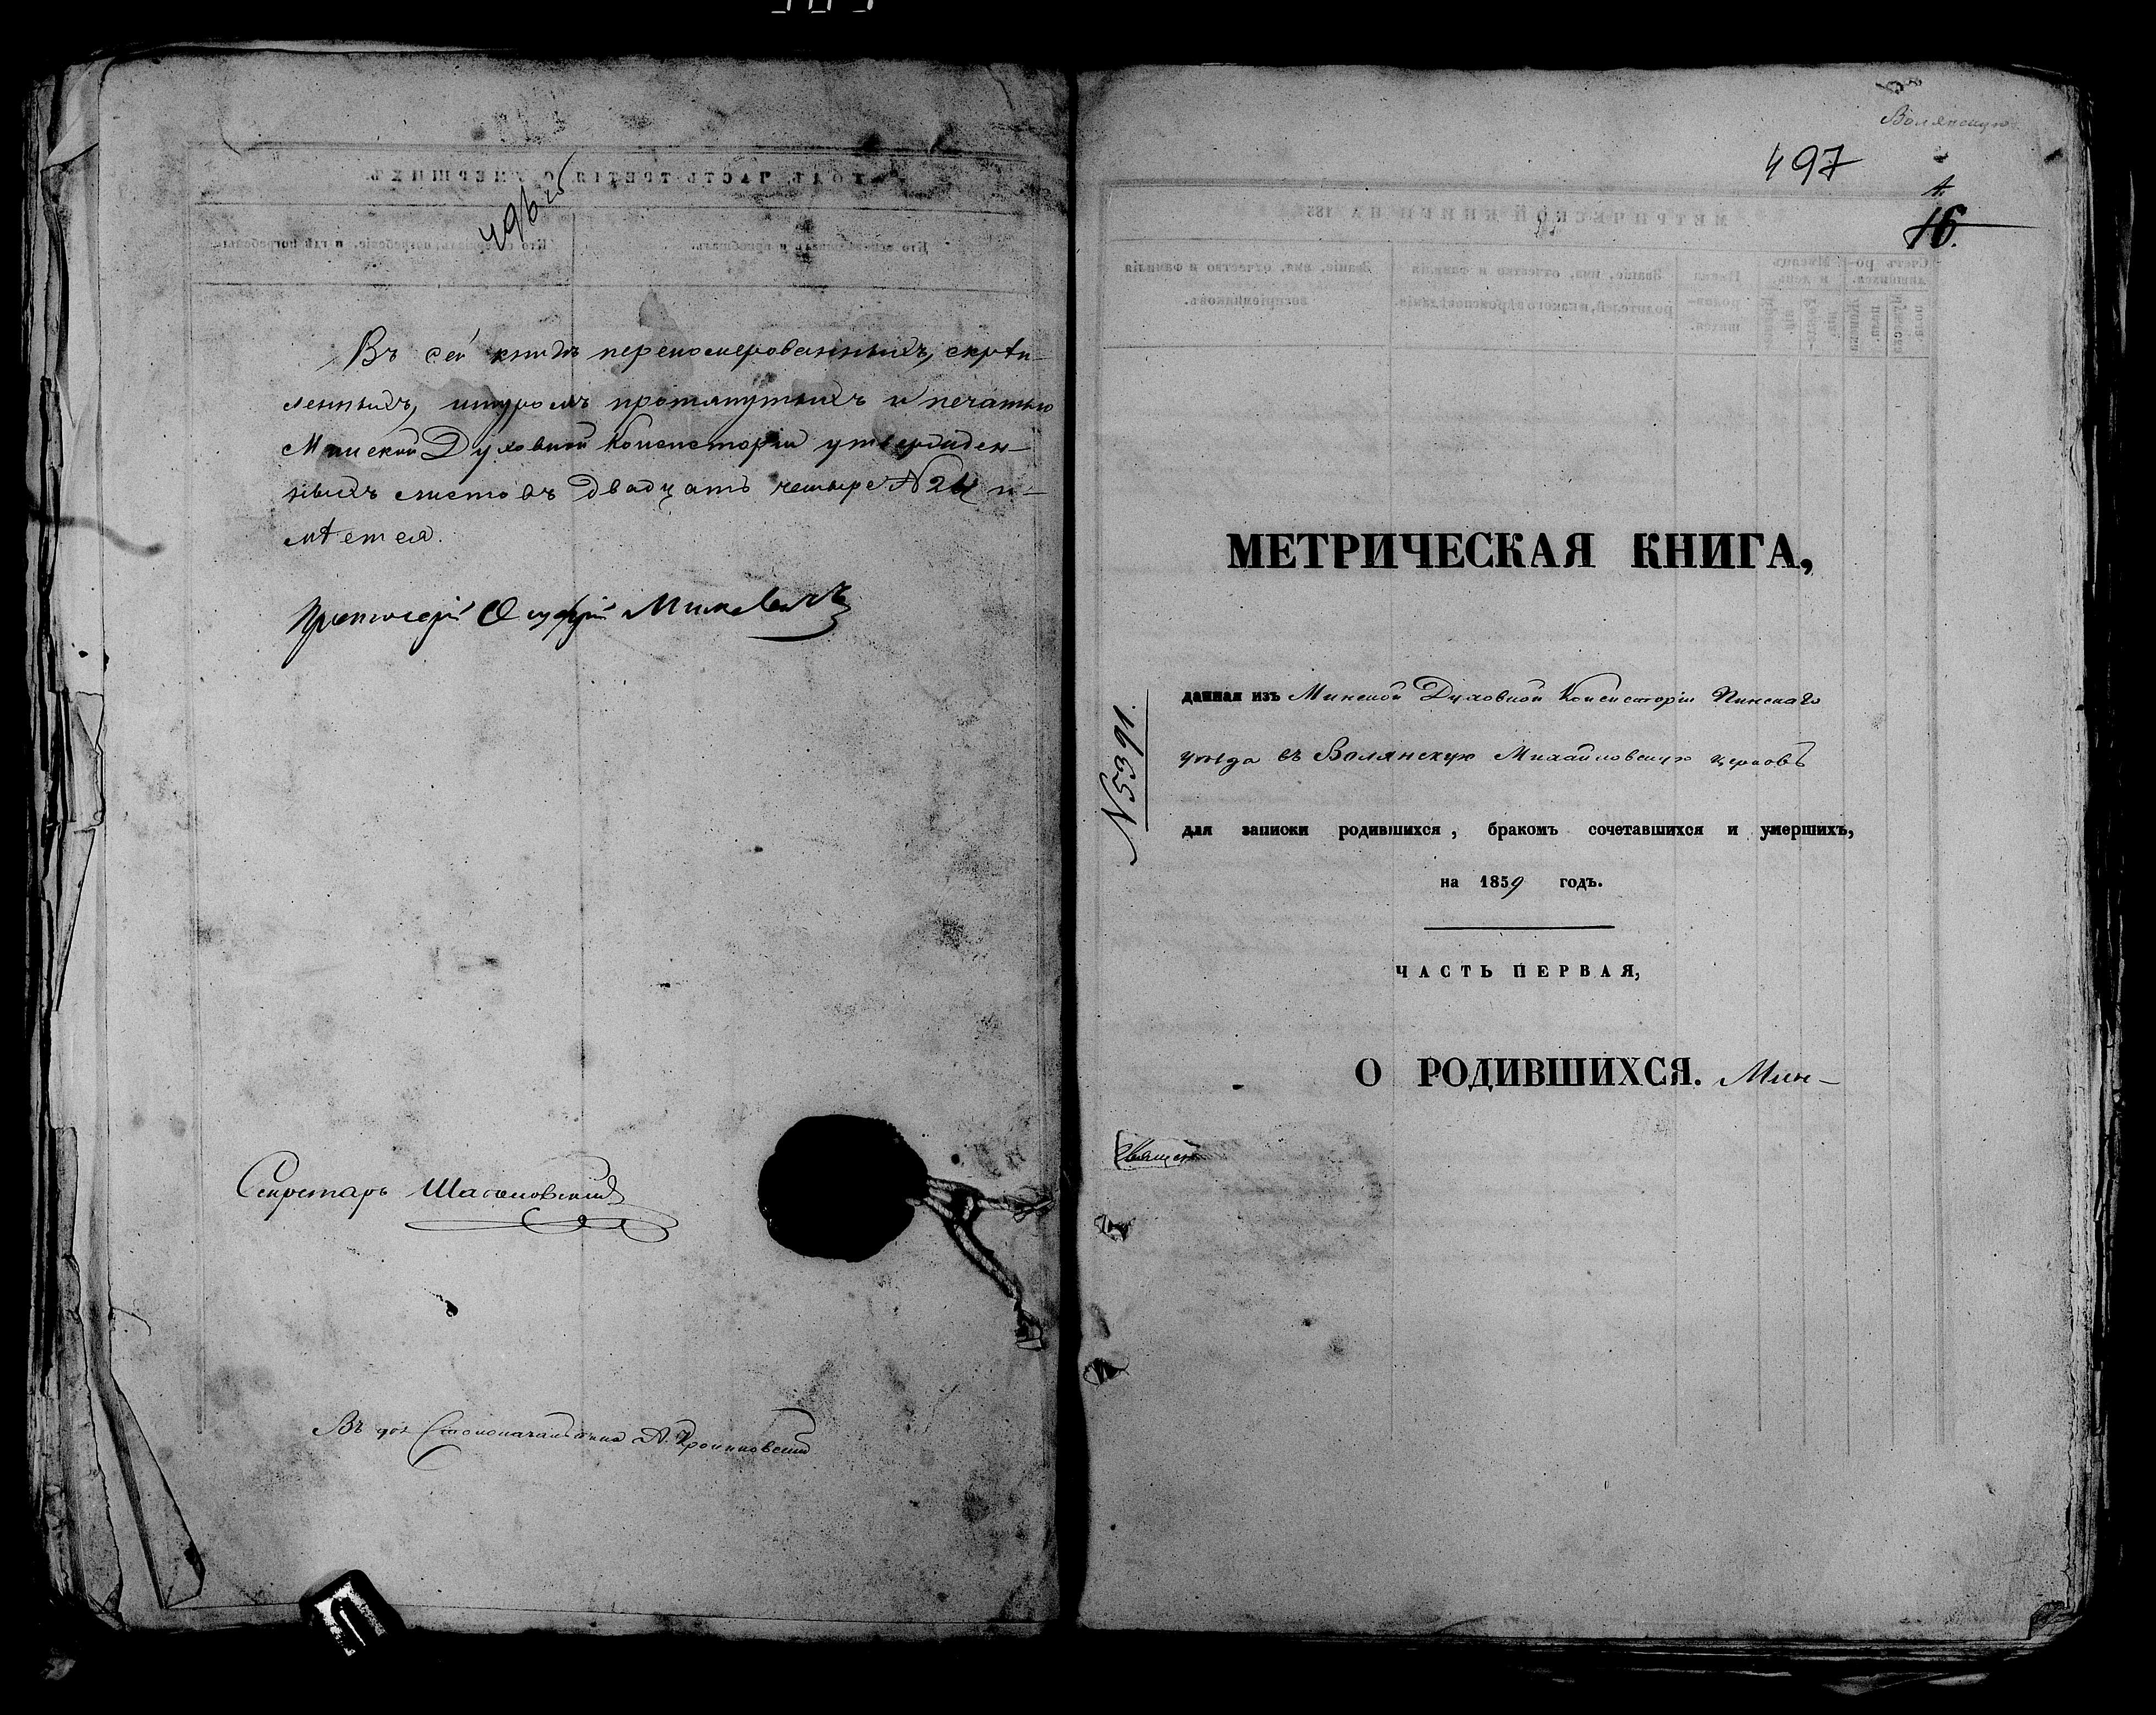 496 об
Въ сей книгѣ перенумерованныхъ, скрѣп-
ленныхъ, шнуромъ протянутыхъ и печатью
Минской Духовной Консисторіи утвержден-
ныхъ листовъ двадцать четыре N 24 и-
мѣется.
Протоіерей
Секретарь
Въ дол. Столоначальника А.
Волянскую
497
4
16.
МЕТРИЧЕСКАЯ КНИГА,
данная изъ Минской Духовной Консисторіи Пинскаго
уѣзда въ Волянскую Михайловскую церковь
для записки родившихся, бракомъ сочетавшихся и умершихъ,
на 1859 годъ.
N 5391.
ЧАСТЬ ПЕРВАЯ,
О РОДИВШИХСЯ. Мин-